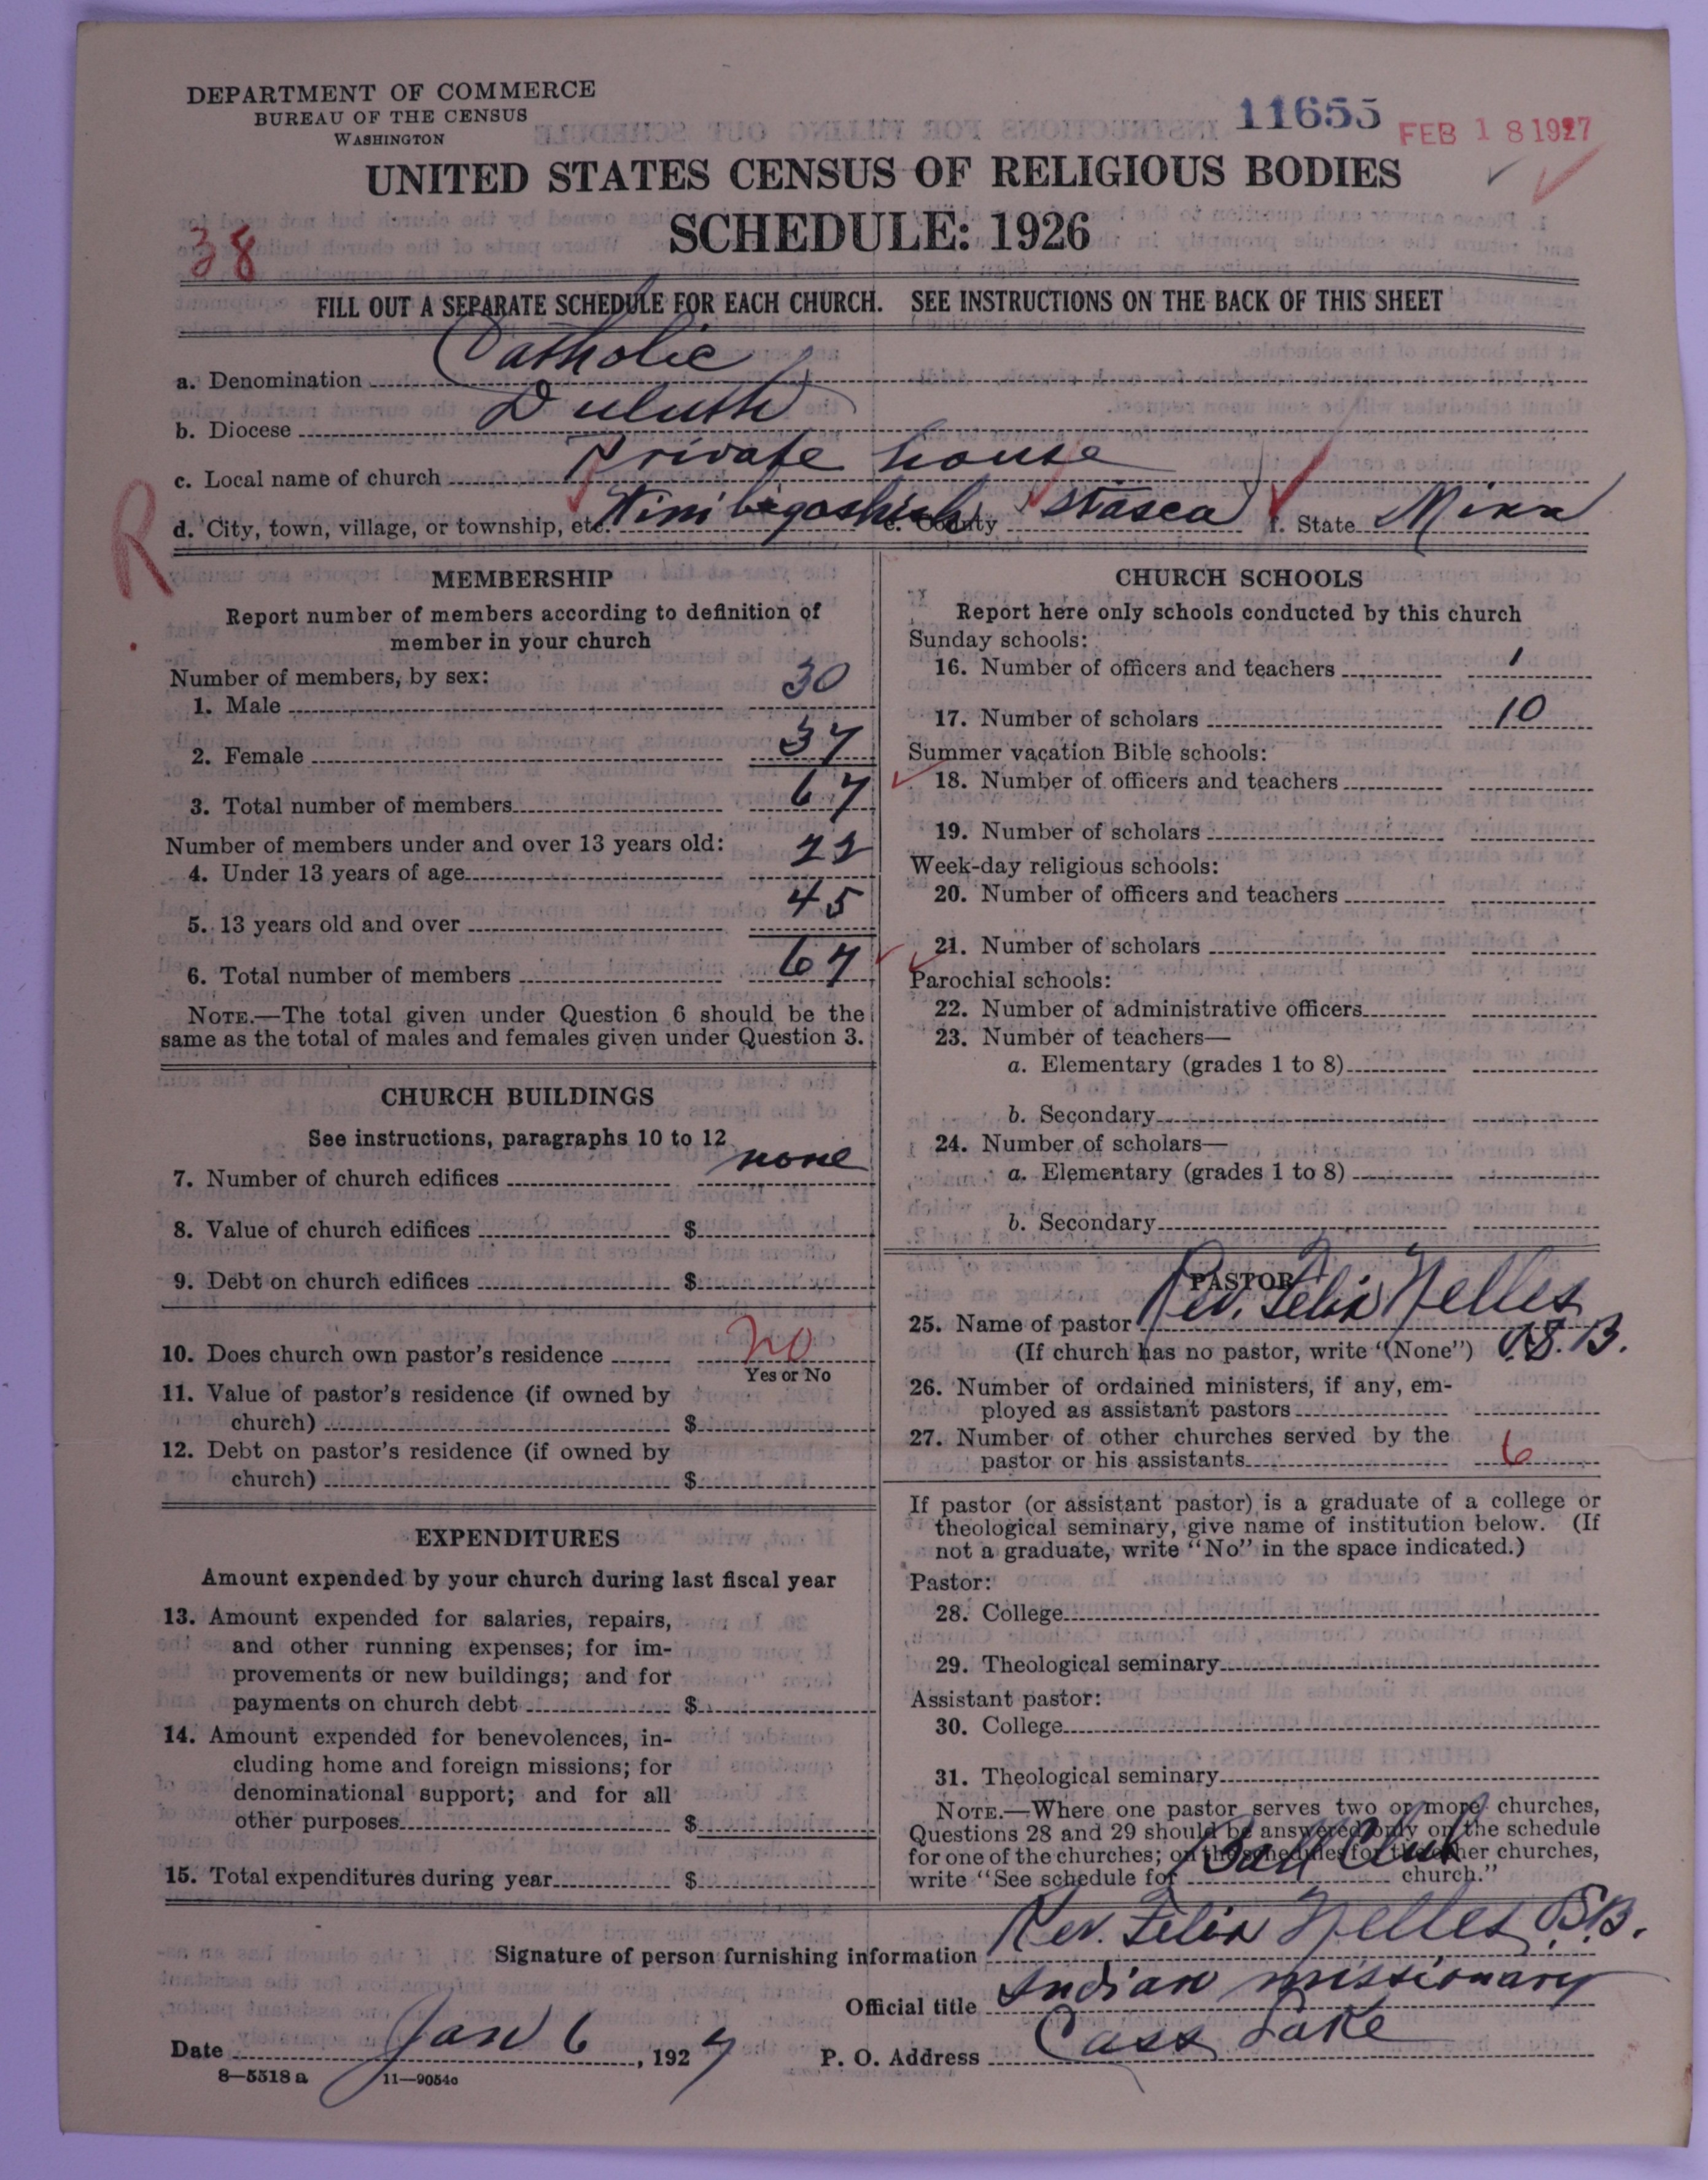 DEPARTMENT OF COMMERCE
BUREAU OF THE CENSUS
WASHINGTON
11655
FEB 18 1927
UNITED STATES CENSUS OF RELIGIOUS BODIES
SCHEDULE: 1926
38
FILL OUT A SEPARATE SCHEDULE FOR EACH CHURCH. SEE INSTRUCTIONS ON THE BACK OF THIS SHEET
a. Denomination Catholic
b. Diocese Duluth
c. Local name of church Private house
d. City, town, village, or township, etc. Winibigoshish e. County Itasca f. State Minn
R
MEMBERSHIP
Report number of members according to definition of
member in your church
Number of members, by sex:
1. Male 30
2. Female 37
3. Total number of members 67
Number of members under and over 13 years old:
4. Under 13 years of age 22
5. 13 years old and over 45
6. Total number of members 67
NOTE.—The total given under Question 6 should be the
same as the total of males and females given under Question 3.
CHURCH BUILDINGS
See instructions, paragraphs 10 to 12
7. Number of church edifices none
8. Value of church edifices $
9. Debt on church edifices $
10. Does church own pastor's residence no
Yes or No
11. Value of pastor's residence (if owned by
church) $
12. Debt on pastor's residence (if owned by
church) $
EXPENDITURES
Amount expended by your church during last fiscal year
13. Amount expended for salaries, repairs,
and other running expenses; for im-
provements or new buildings; and for
payments on church debt $
14. Amount expended for benevolences, in-
cluding home and foreign missions; for
denominational support; and for all
other purposes $
15. Total expenditures during year $
CHURCH SCHOOLS
Report here only schools conducted by this church
Sunday schools:
16. Number of officers and teachers 1
17. Number of scholars 10
Summer vacation Bible schools:
18. Number of officers and teachers
19. Number of scholars
Week-day religious schools:
20. Number of officers and teachers
21. Number of scholars
Parochial schools:
22. Number of administrative officers
23. Number of teachers—
a. Elementary (grades 1 to 8)
b. Secondary
24. Number of scholars—
a. Elementary (grades 1 to 8)
b. Secondary
PASTOR
25. Name of pastor Rev. Felix Nelles
(If church has no pastor, write "(None") O.S.B.
26. Number of ordained ministers, if any, em-
ployed as assistant pastors
27. Number of other churches served by the
pastor or his assistants 6
If pastor (or assistant pastor) is a graduate of a college or
theological seminary, give name of institution below. (If
not a graduate, write "No" in the space indicated.)
Pastor:
28. College
29. Theological seminary
Assistant pastor:
30. College
31. Theological seminary
NOTE.—Where one pastor serves two or more churches,
Questions 28 and 29 should be answered only on the schedule
for one of the churches; on the schedules for the other churches,
write "See schedule for Ball Club church."
Signature of person furnishing information Rev. Felix Nelles O.S.B.
Official title Indian missionary
Date Jan 6, 1927 P. O. Address Cass Lake
8—5518 a 11—9054c